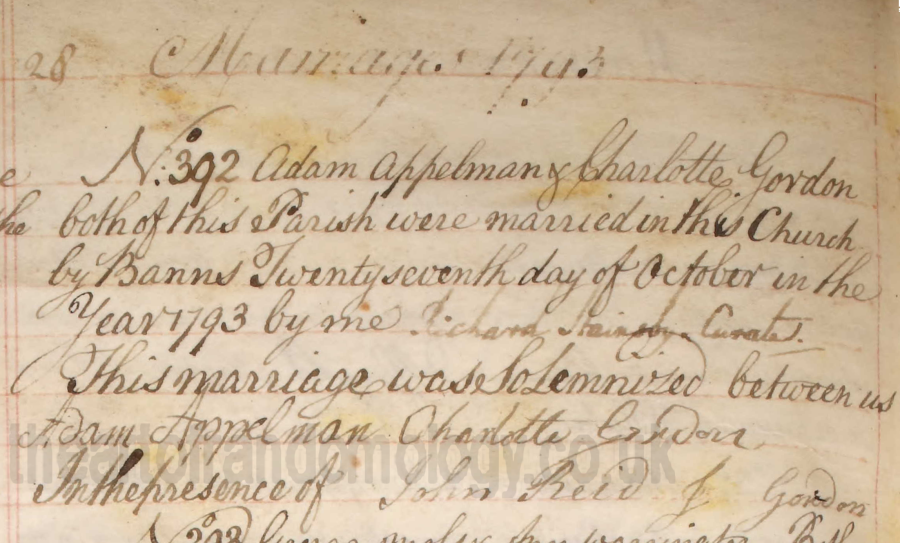 28 Marriages 1793
No. 392 Adam Appelman & Charlotte Gordon
e both of this Parish were married in this Church
he by Banns Twenty seventh day of October in the
Year 1793 by me Richard Curate.
This marriage was Solemnized between us
Adam Appelman Charlotte Gordon
theartofrandomology.co.uk
In the presence of John Reid J Gordon
No 393